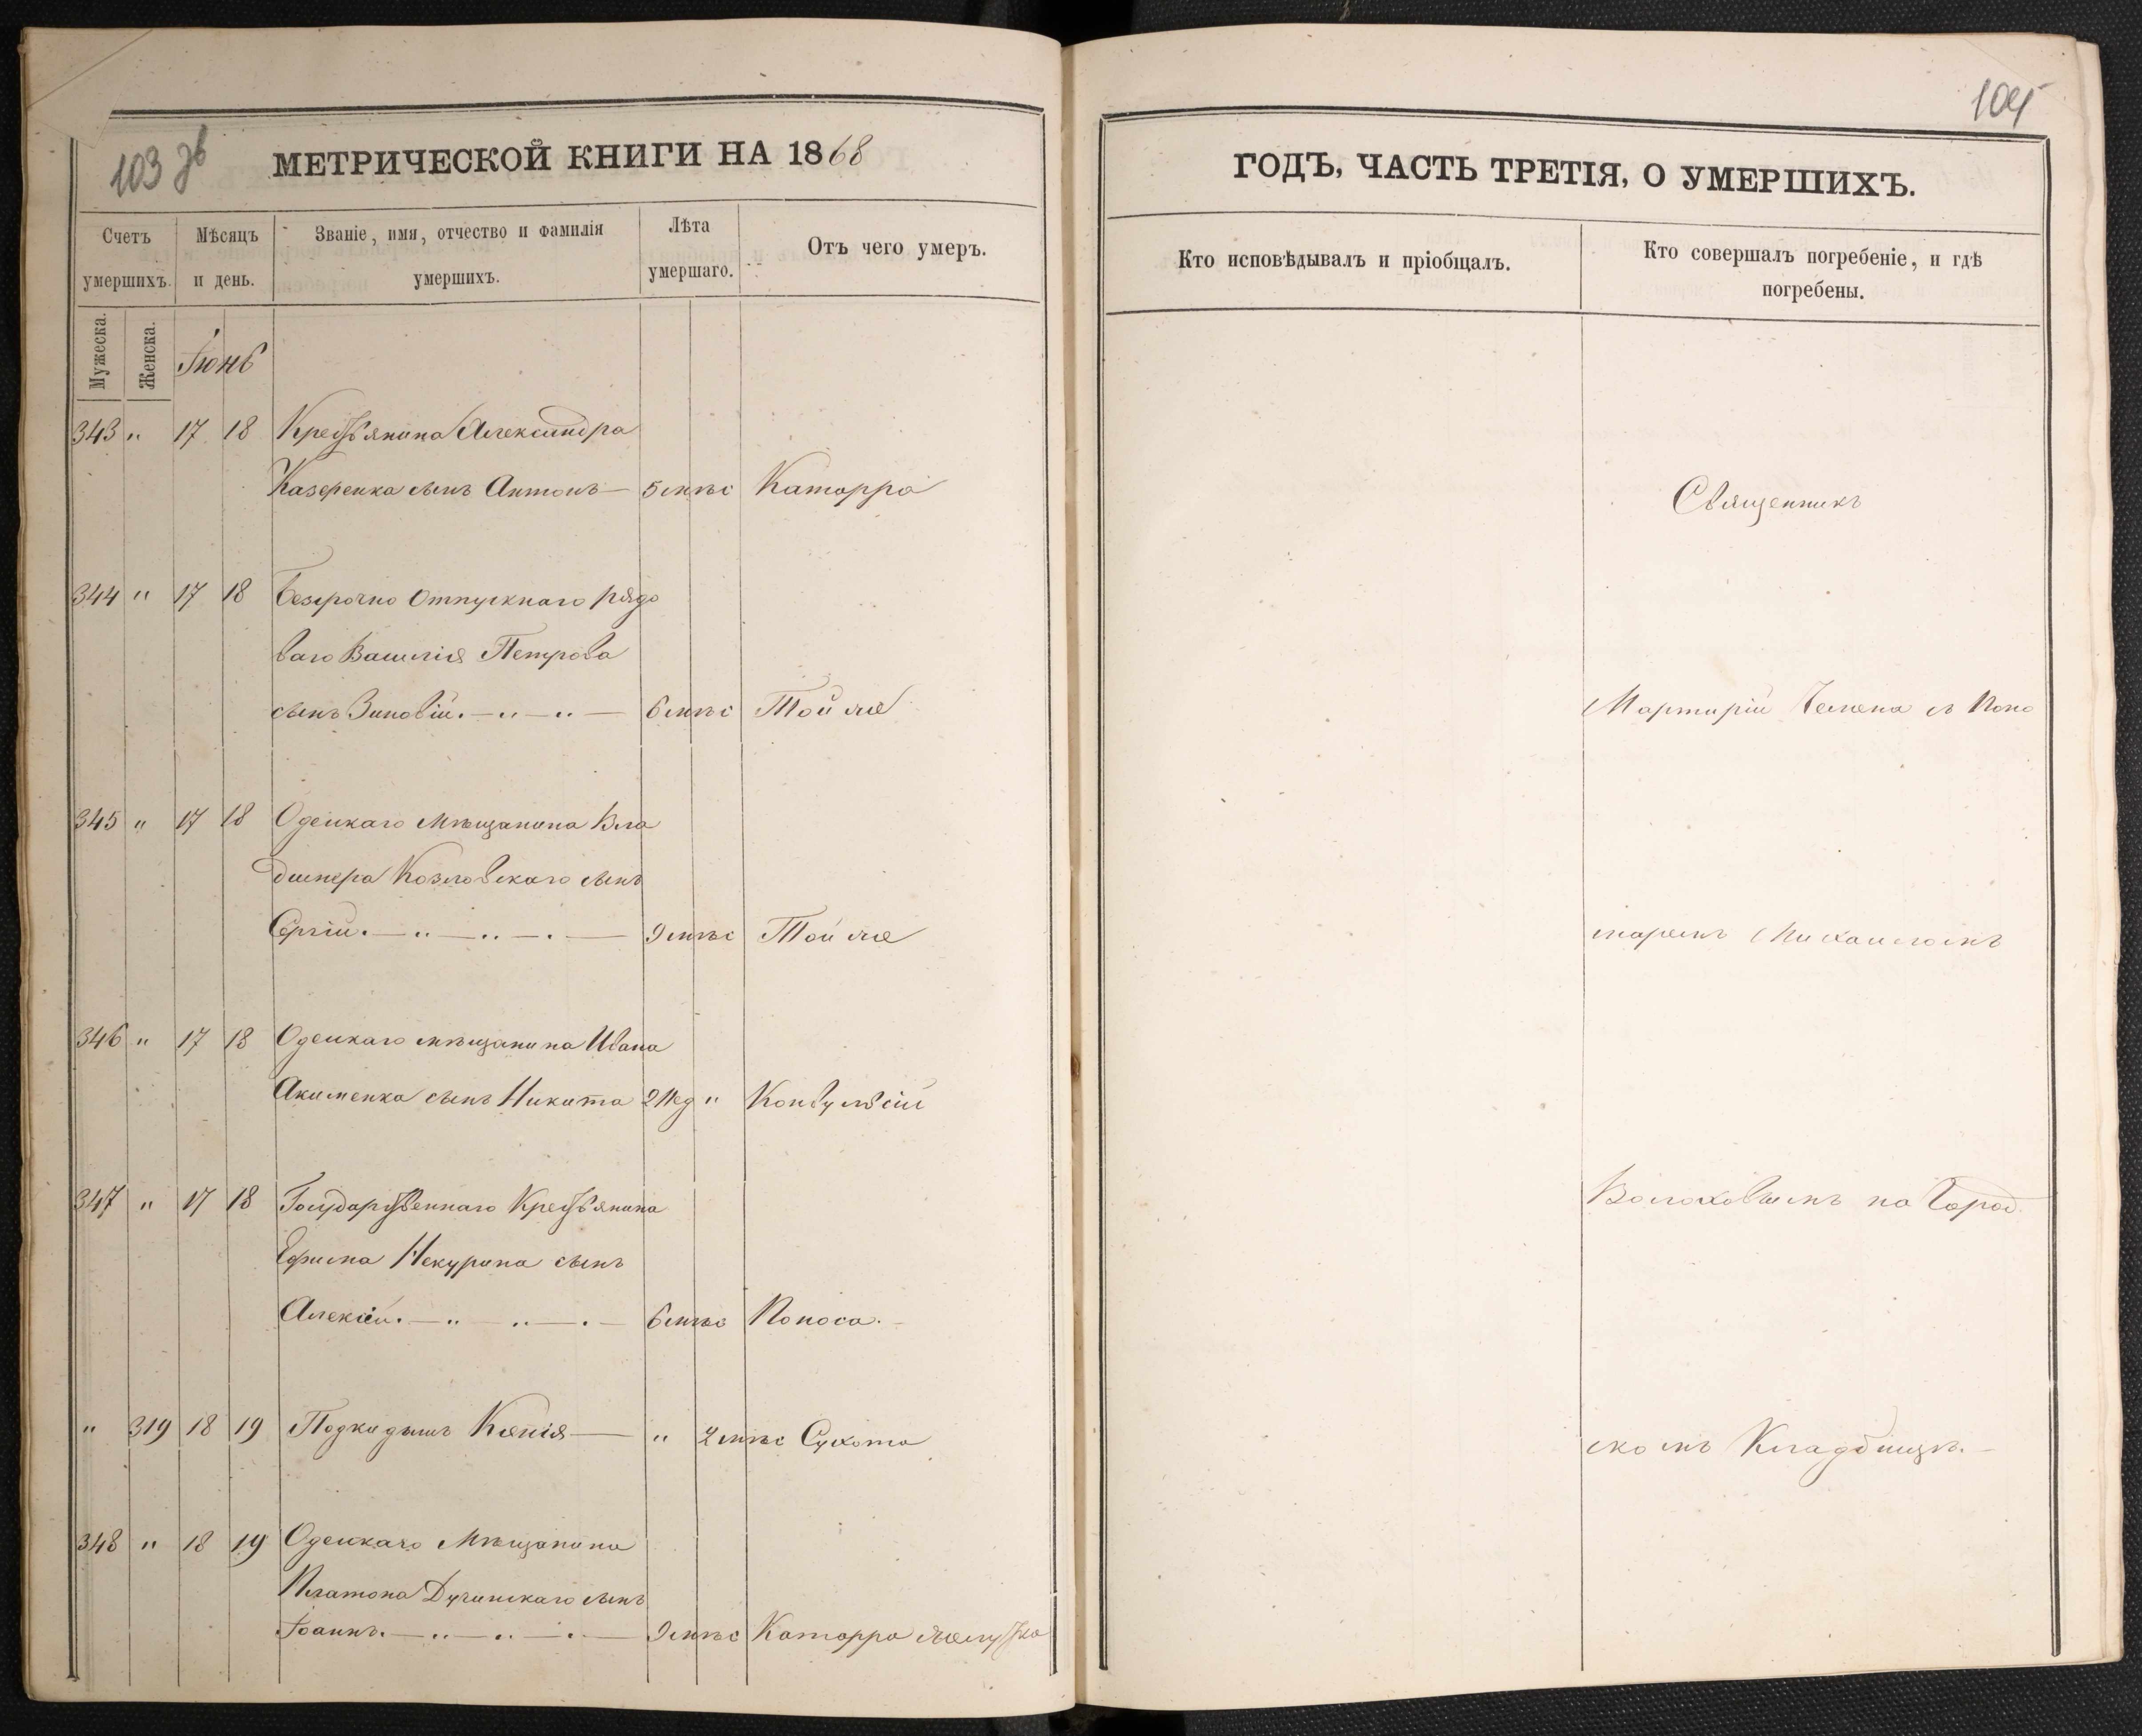 103 зв
МЕТРИЧЕСКОЙ КНИГИ НА 1868
Счетъ умершихъ.
Мѣсяцъ и день.
Званіе, имя, отчество и фамилія умершихъ.
Лѣта умершаго.
Отъ чего умеръ.
Мужеска.
Женска.
Іюнь
343 " 17 18 Крестьянина Александра
Казеренка сынъ Антонъ — 5 мѣс Катарра
344 " 17 18 Безсрочно отпускнаго рядо
ваго Василія Петрова
сынъ Зиновій. — " — " — 6 мѣс Той же
345 " 17 18 Одескаго Мѣщанина Вла
димера Козловскаго сынъ
Сергій. — " — " — . — 9 мѣс Той же
346 " 17 18 Одескаго мѣщанина Ивана
Акименка сынъ Никита 2 Нед " Конвульсіи
347 " 17 18 Государственнаго Крестьянина
Ефима Некурина сынъ
Алексій. — " — " — . — 6 мѣс Поноса. —
" 319 18 19 Подкидышъ Ксенія — " 2 мѣс Сухота
348 " 18 19 Одескаго Мѣщанина
Платона Дучинскаго сынъ
Іоаннъ. — " — " — . — 9 мѣс Катарра желудка
104
ГОДЪ, ЧАСТЬ ТРЕТІЯ, О УМЕРШИХЪ.
Кто исповѣдывалъ и пріобщалъ.
Кто совершалъ погребеніе, и гдѣ погребены.
Священникъ
Мартирій Чемена съ Поно
маремъ Михаиломъ
Волоховымъ на Город
скомъ Кладбищѣ. —